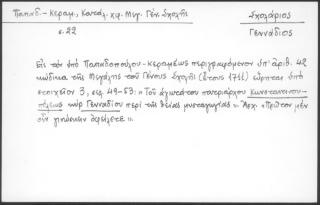 Παπαδ.-Κεραμ., Κατάλ. χφ. Μεγ. Γέν. Σχολῆς
Σχολάριος
σ. 22
Γεννάδιος
Εἰς τὸν ὑπὸ Παπαδοπούλου-Κεραμέως περιγραφόμενον ὑπ' ἀριθ. 42
κώδικα τῆς Μεγάλης τοῦ Γένους Σχολῆς (ἔτους 1711) εὕρηται ὑπὸ
στοιχεῖον 3, σελ. 49-53: «Τοῦ ἁγιωτάτου πατριάρχου Κωνσταντινου-
πόλεως κὺρ Γενναδίου περὶ τῆς θείας μυσταγωγίας». Ἀρχ. «Πρῶτον μὲν
οὖν γινώσκειν ὀφείλετε».